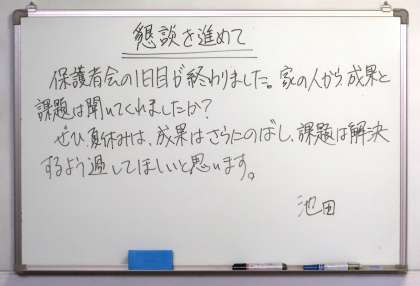 懇談を進めて
保護者会の1日目が終わりました。家の人から成果と
課題は聞いてくれましたか?
ぜひ夏休みは、成果はさらにのばし、課題は解決
するよう過してほしいと思います。
池田